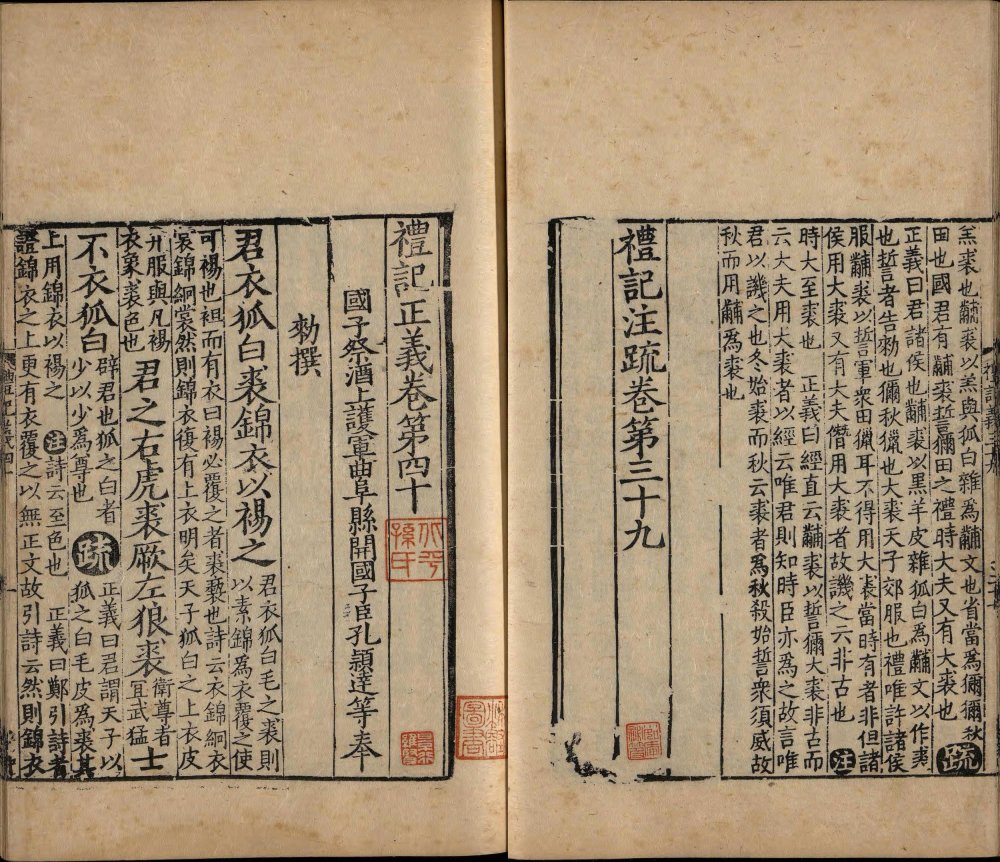 羔裘也黼裘以羔與狐白雜爲黼文也省當爲獮獮秋
田也國君有黼裘誓獮田之禮時大夫又有大裘也 疏
正義曰君諸侯也黼裘以黑羊皮雜狐白爲黼文以作裘
也誓者告勑也獮秋獵也大裘天子郊服也禮唯許諸侯
服黼裘以誓軍衆田獵耳不得用大裘當時有者非但諸
侯用大裘又有大夫僭用大裘者故譏之六非古也 注
時大至裘也 正義曰經直云黼裘以誓獮大裘非古而
云大夫用大裘者以經云唯君則知時臣亦爲之故言唯
君以譏之也冬始裘而秋云裘者爲秋殺始誓衆須威故
秋而用黼爲裘也
禮記注疏卷第三十九
禮記正義卷第四十
北平孫氏
國子祭酒上護軍曲阜縣開國子臣孔穎達等奉
勑撰
君衣狐白裘錦衣以裼之 君衣狐白毛之裘則以素錦爲衣覆之使
可裼也袒而有衣曰裼必覆之者裘褻也詩云衣錦絅衣
裳錦絅裳然則錦衣復有上衣明矣天子狐白之上衣皮
弁服與凡裼衣象裘色也 君之右虎裘厥左狼裘 衛尊者宜武猛 士
不衣狐白 辟君也狐之白者少以少爲尊也 疏 正義曰君謂天子以狐之白毛皮爲裘其
上用錦衣以裼之 注 詩云至色也 正義曰鄭引詩者
證錦衣之上更有衣覆之以無正文故引詩云然則錦衣